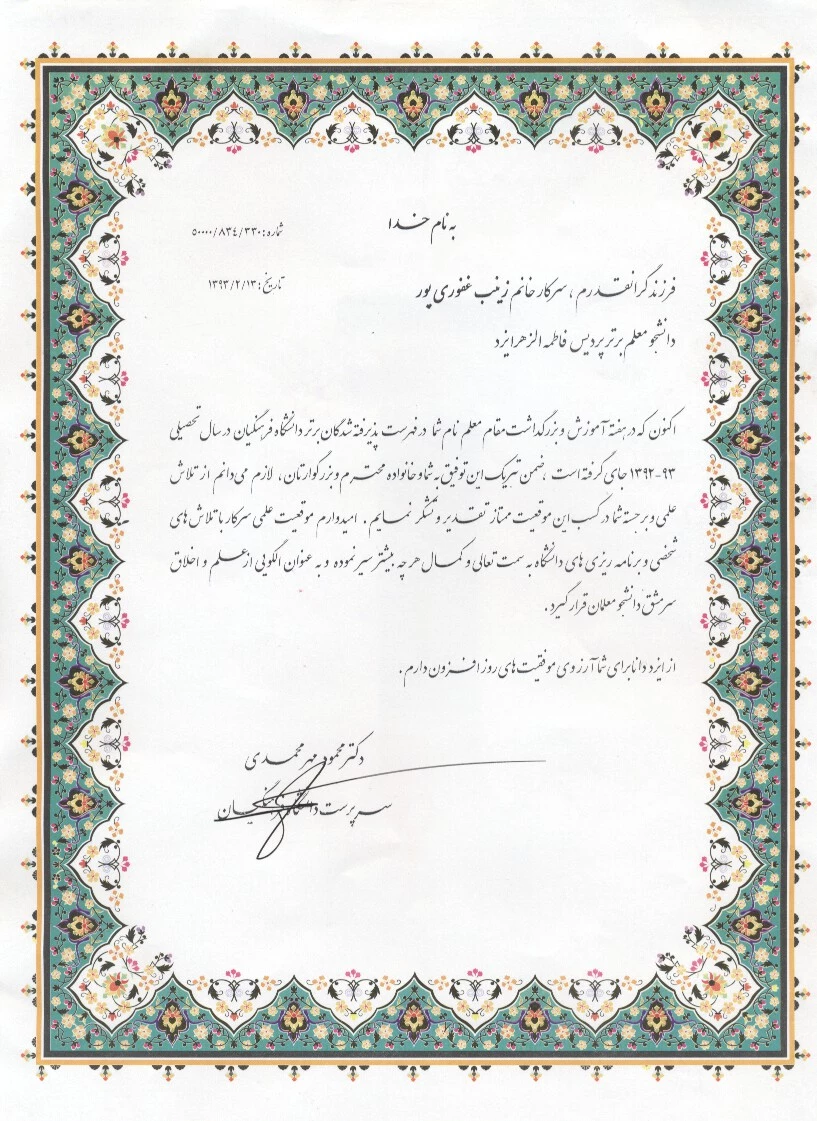 به نام خدا
شماره: ۵۰۰۰۰/۸۳۴/۳۳۰
تاریخ: ۱۳۹۳/۲/۱۳
فرزند گرانقدرم ، سرکار خانم زینب غفوری پور
دانشجو معلم برتر پردیس فاطمه الزهرا یزد
اکنون که در هفته آموزش و بزرگداشت مقام معلم نام شما در فهرست پذیرفته شدگان برتر دانشگاه فرهنگیان در سال تحصیلی
۱۳۹۲-۹۳ جای گرفته است ، ضمن تبریک این توفیق به شما و خانواده محترم و بزرگوارتان، لازم می‌دانم از تلاش
علمی و برجسته شما در کسب این موقعیت ممتاز تقدیر و تشکر نمایم . امیدوارم موقعیت علمی سرکار با تلاش های
شخصی و برنامه ریزی های دانشگاه به سمت تعالی و کمال هر چه بیشتر سیر نموده و به عنوان الگویی از علم و اخلاق
سرمشق دانشجو معلمان قرار گیرد .
از ایزد دانا برای شما آرزوی موفقیت های روز افزون دارم .
دکتر محمود مهرمحمدی
سرپرست دانشگاه فرهنگیان